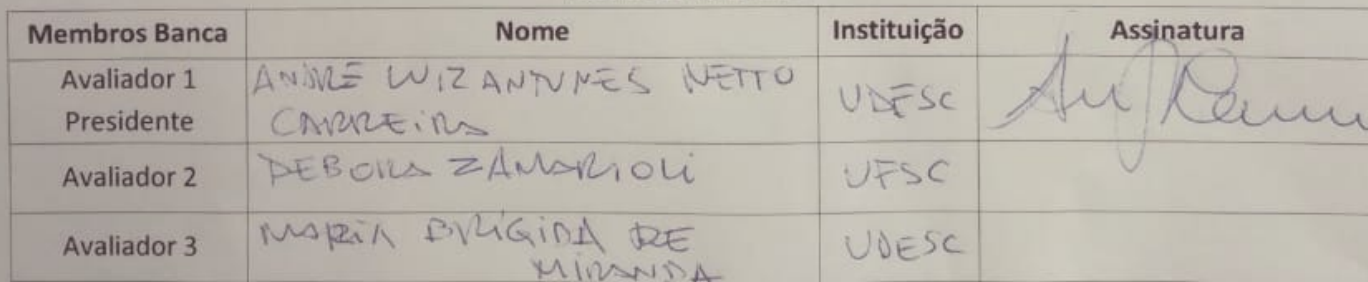 Membros Banca Nome Instituição Assinatura
Avaliador 1 Presidente ANDRÉ LUIZ ANTUNES NETTO CARREIRA UDESC
Avaliador 2 DEBORA ZAMARIOLI UFSC
Avaliador 3 MARIA BRÍGIDA DE MIRANDA UDESC